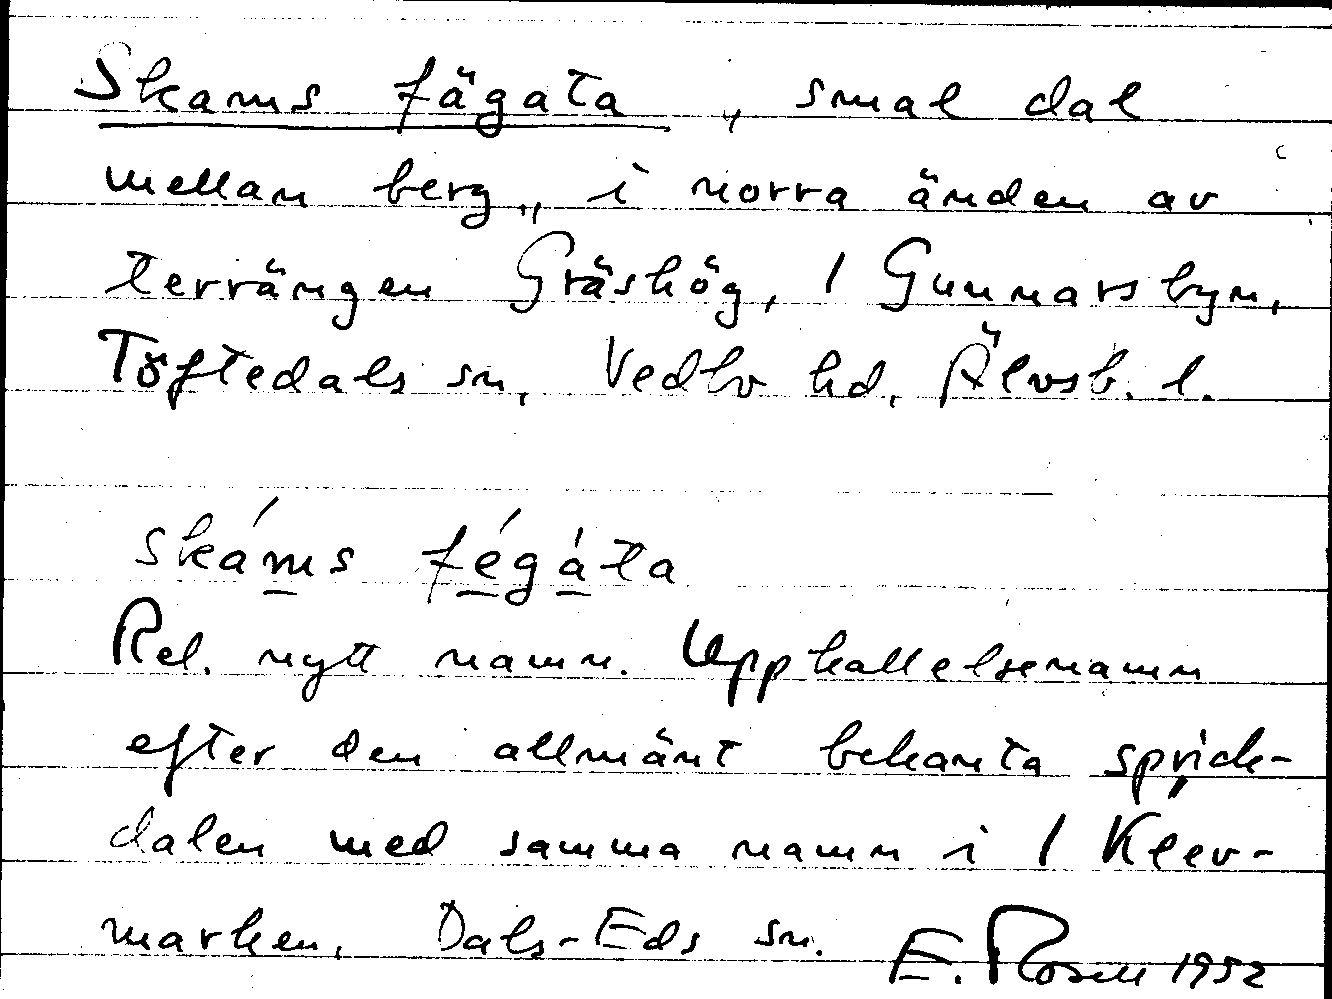 Skams fägata, smal dal
mellan berg, i norra änden av
terrängen Gräshög, / Gunnarsbyn,
Töftedals sn, Vedbo hd, Älvsb. l.
skáms fégáta
Rel. nytt namn. Uppkallelsenamn
efter den allmänt bekanta sprick-
dalen med samma namn i / Klev-
marken, Dals-Eds sn. E. Rosell 1952